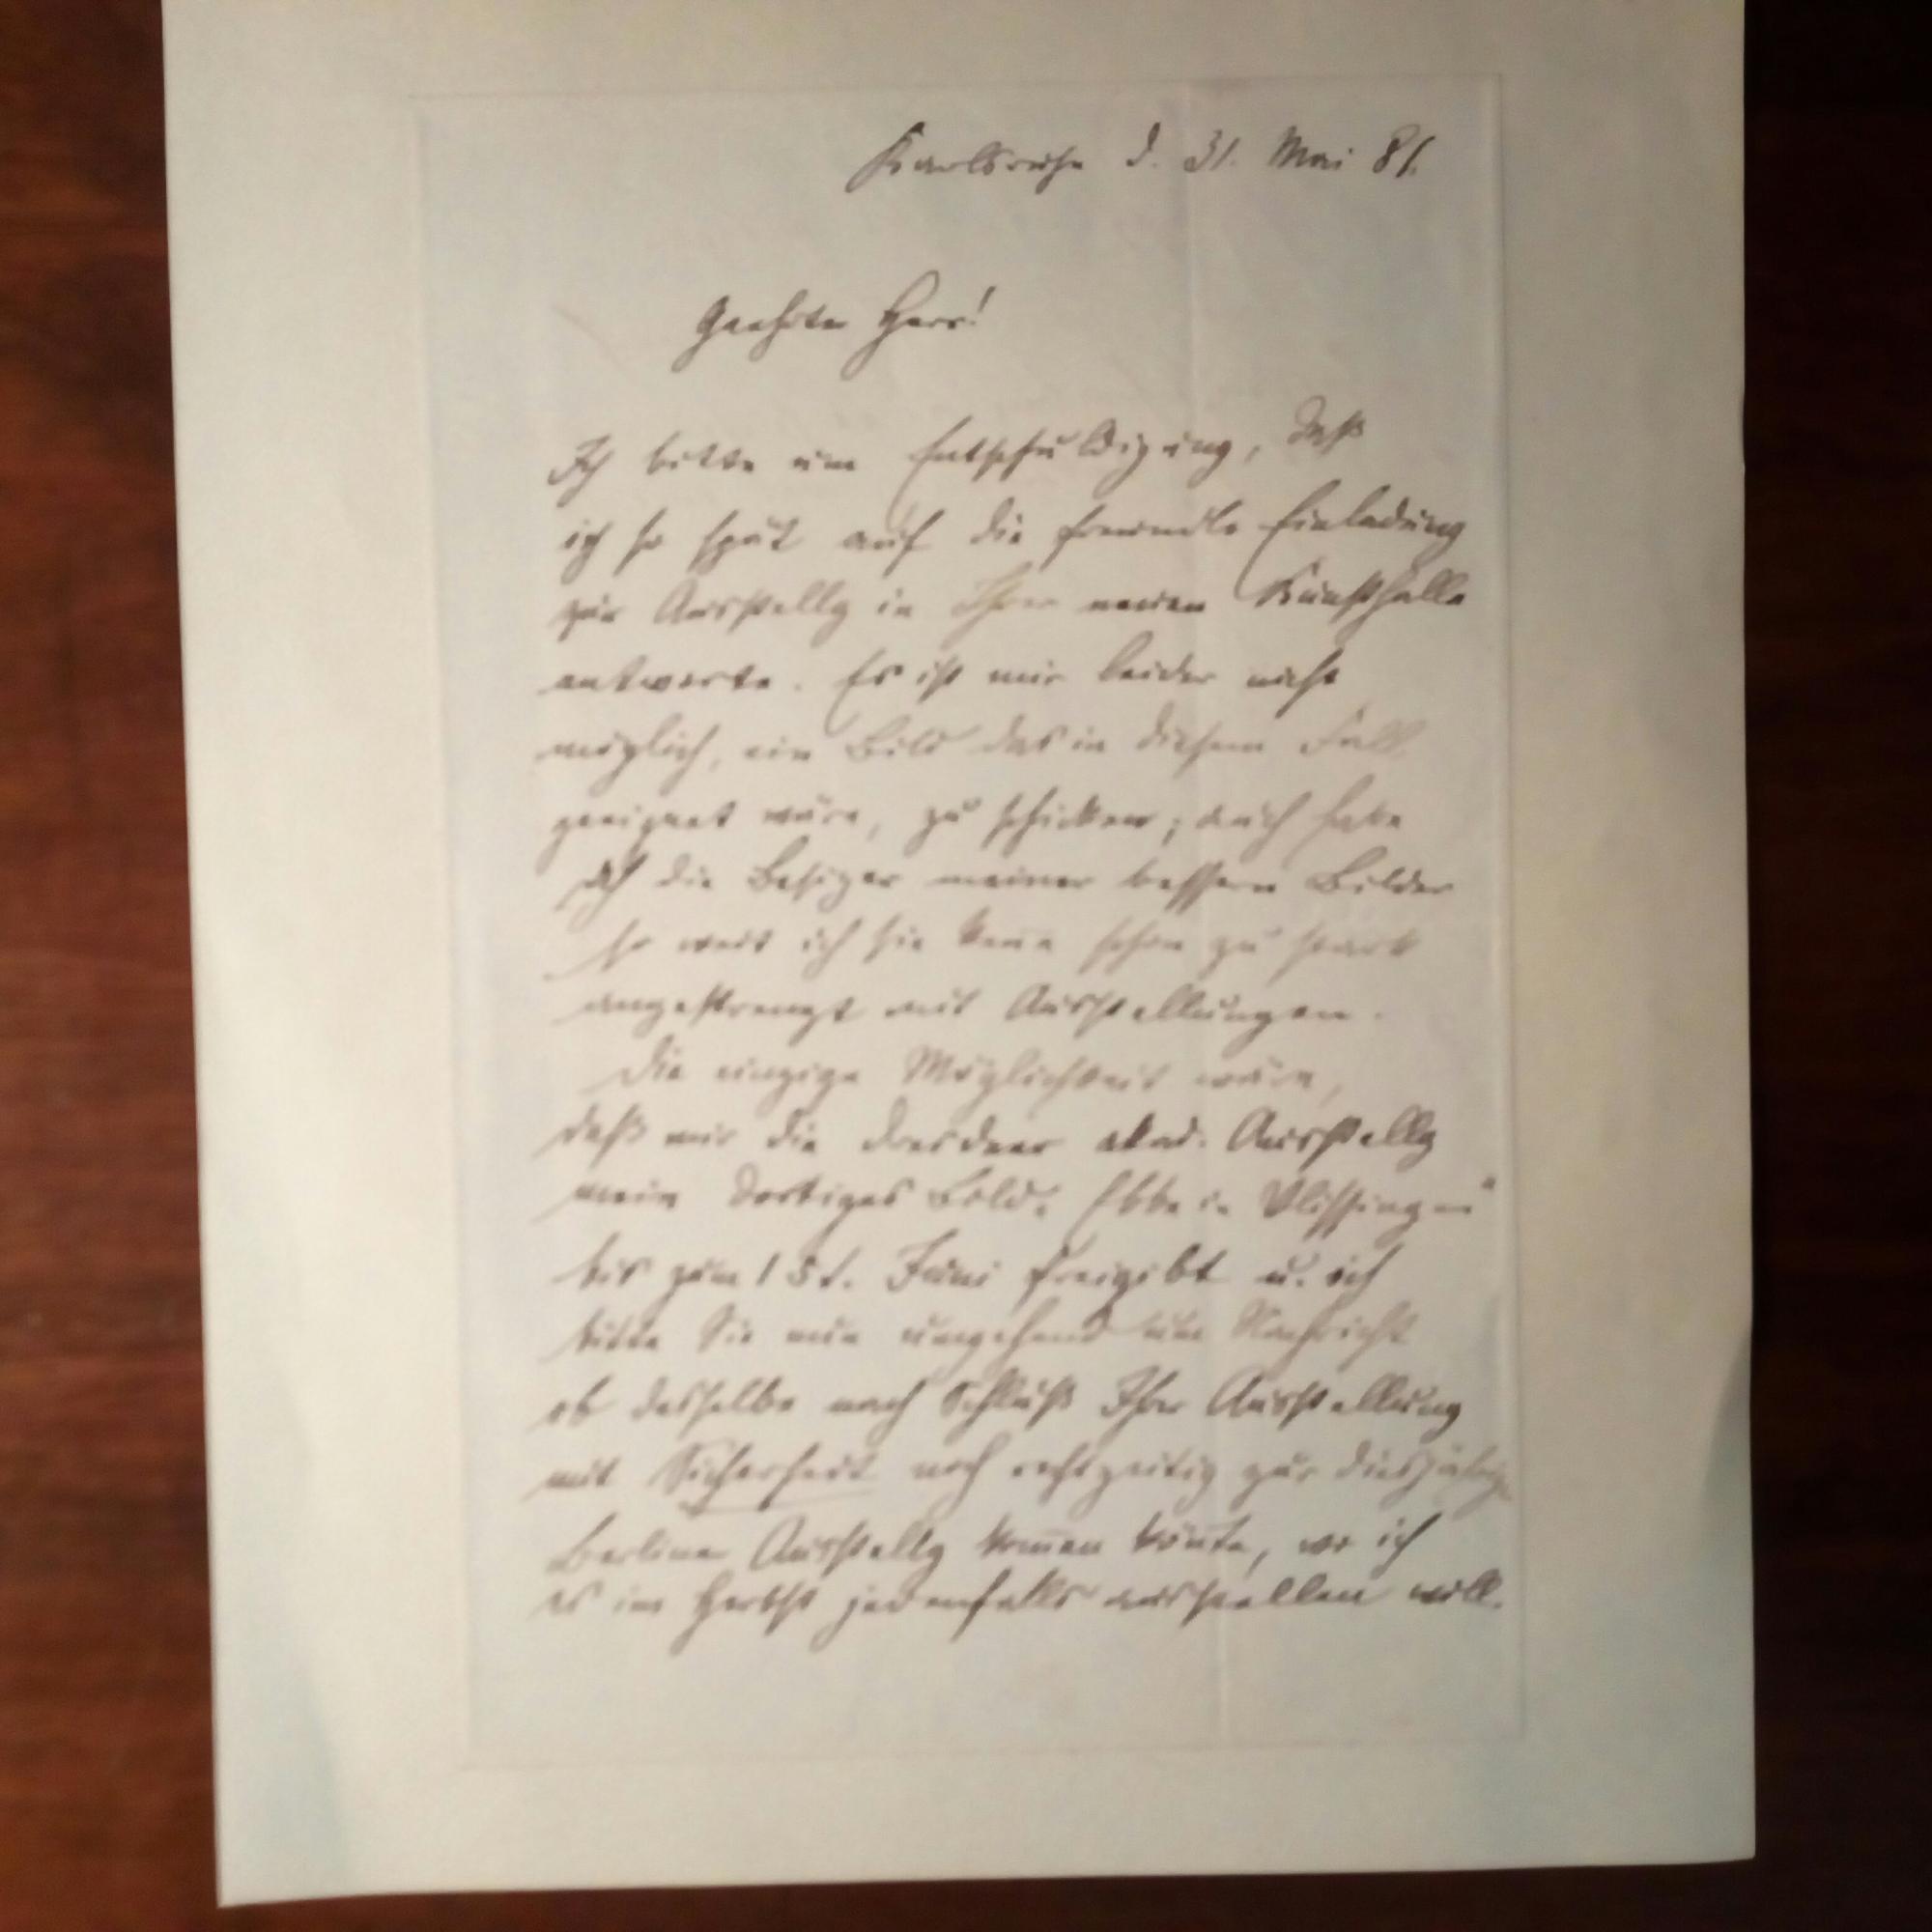 Karlsruhe d. 31. Mai 81.
Geehrter Herr!
Ich bitte um Entschuldigung, daß
ich so spät auf die freundle Einladung
zur Ausstellg in Ihrer neuen Kunsthalle
antworte. Es ist mir leider nicht
möglich, ein Bild das in diesem Fall
geeignet wäre, zu schicken; auch habe
ich die Besizer meiner bessern Bilder
so weit ich sie kenne schon zu stark
angestrengt mit Ausstellungen.
Die einzige Möglichkeit wäre,
daß mir die Dresdner akad. Ausstellg
mein dortiges Bild: Ebbe in Vlissingen"
bis zum 15t. Juni freigibt u. ich
bitte Sie nun umgehend um Nachricht
ob dasselbe nach Schluß Ihrer Ausstellung
mit Sicherheit noch rechtzeitig zur diesjährig
Berliner Ausstellg komen könte, wo ich
es im Herbst jedenfalls ausstellen will.